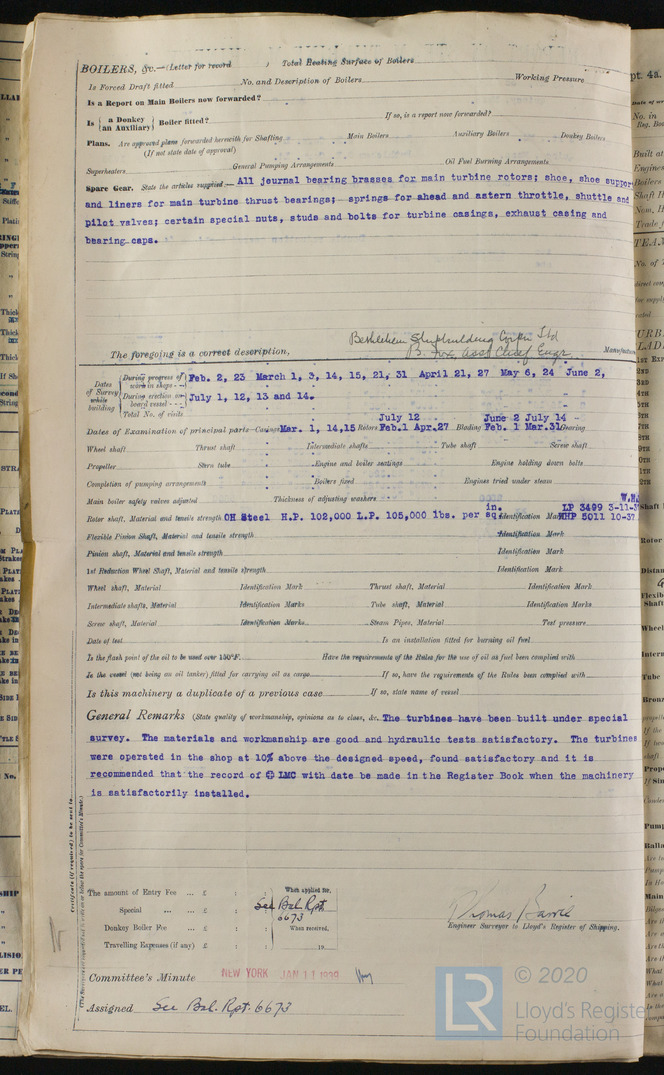 BOILERS, &c.—(Letter for record ) Total Heating Surface of Boilers
Is Forced Draft fitted No. and Description of Boilers Working Pressure
Is a Report on Main Boilers now forwarded?
Is { a Donkey / an Auxiliary } Boiler fitted? If so, is a report now forwarded?
Plans. Are approved plans forwarded herewith for Shafting Main Boilers Auxiliary Boilers Donkey Boilers
(If not state date of approval)
Superheaters General Pumping Arrangements Oil Fuel Burning Arrangements
Spare Gear. State the articles supplied:— All journal bearing brasses for main turbine rotors; shoe, shoe support
and liners for main turbine thrust bearings; springs for ahead and astern throttle, shuttle and
pilot valves; certain special nuts, studs and bolts for turbine casings, exhaust casing and
bearing caps.
Bethlehem Shipbuilding Corpn Ltd
The foregoing is a correct description, B. Fox Asst Chief Engr.
Dates of Survey while building
During progress of work in shops - - Feb. 2, 23 March 1, 3, 14, 15, 21, 31 April 21, 27 May 6, 24 June 2,
During erection on board vessel - - - July 1, 12, 13 and 14.
Total No. of visits
July 12 June 2 July 14 -
Dates of Examination of principal parts—Casings Mar. 1, 14, 15 Rotors Feb. 1 Apr. 27 Blading Feb. 1 Mar. 31 Gearing
Wheel shaft Thrust shaft Intermediate shafts Tube shaft Screw shaft
Propeller Stern tube Engine and boiler seatings Engine holding down bolts
Completion of pumping arrangements Boilers fixed Engines tried under steam
Main boiler safety valves adjusted Thickness of adjusting washers W.H.
in. LP 3499 3-11-3
Rotor shaft, Material and tensile strength OH Steel H.P. 102,000 L.P. 105,000 lbs. per sq. Identification Mark HP 5011 10-37
Flexible Pinion Shaft, Material and tensile strength Identification Mark
Pinion shaft, Material and tensile strength Identification Mark
1st Reduction Wheel Shaft, Material and tensile strength Identification Mark
Wheel shaft, Material Identification Mark Thrust shaft, Material Identification Mark
Intermediate shafts, Material Identification Marks Tube shaft, Material Identification Marks
Screw shaft, Material Identification Marks Steam Pipes, Material Test pressure
Date of test Is an installation fitted for burning oil fuel
Is the flash point of the oil to be used over 150°F. Have the requirements of the Rules for the use of oil as fuel been complied with
Is the vessel (not being an oil tanker) fitted for carrying oil as cargo If so, have the requirements of the Rules been complied with
Is this machinery a duplicate of a previous case If so, state name of vessel
General Remarks (State quality of workmanship, opinions as to class, &c. The turbines have been built under special
survey. The materials and workmanship are good and hydraulic tests satisfactory. The turbines
were operated in the shop at 10% above the designed speed, found satisfactory and it is
recommended that the record of LMC with date be made in the Register Book when the machinery
is satisfactorily installed.
The amount of Entry Fee ... £ : : When applied for,
Special ... ... £ : : See Bal. Rpt
6673
Donkey Boiler Fee ... £ : : When received,
Travelling Expenses (if any) £ : : 19
Thomas Barrie
Engineer Surveyor to Lloyd's Register of Shipping.
Committee's Minute NEW YORK JAN 11 1939
Assigned See Bal. Rpt. 6673
© 2020
LR Lloyd's Register
Foundation